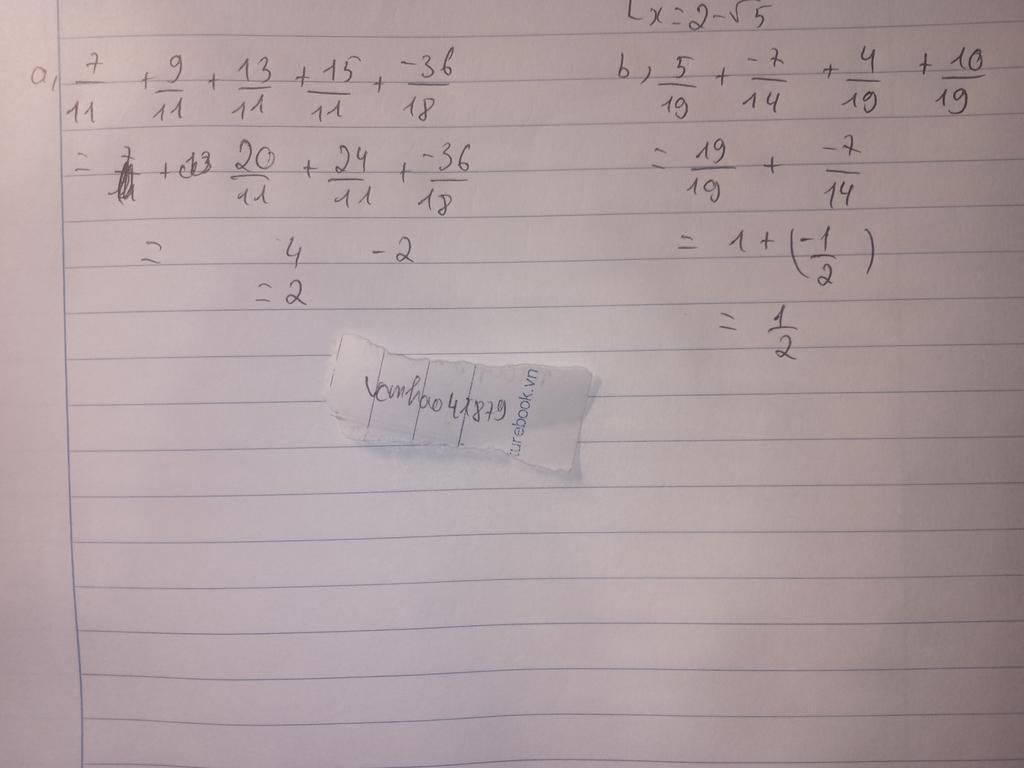 [x = 2 - √5
a, 7/11 + 9/11 + 13/11 + 15/11 + -36/18
= + 20/11 + 24/11 + -36/18
= 4 - 2
= 2
b, 5/19 + -7/14 + 4/19 + 10/19
= 19/19 + -7/14
= 1 + (-1/2)
= 1/2
vanhao41879
turebook.vn